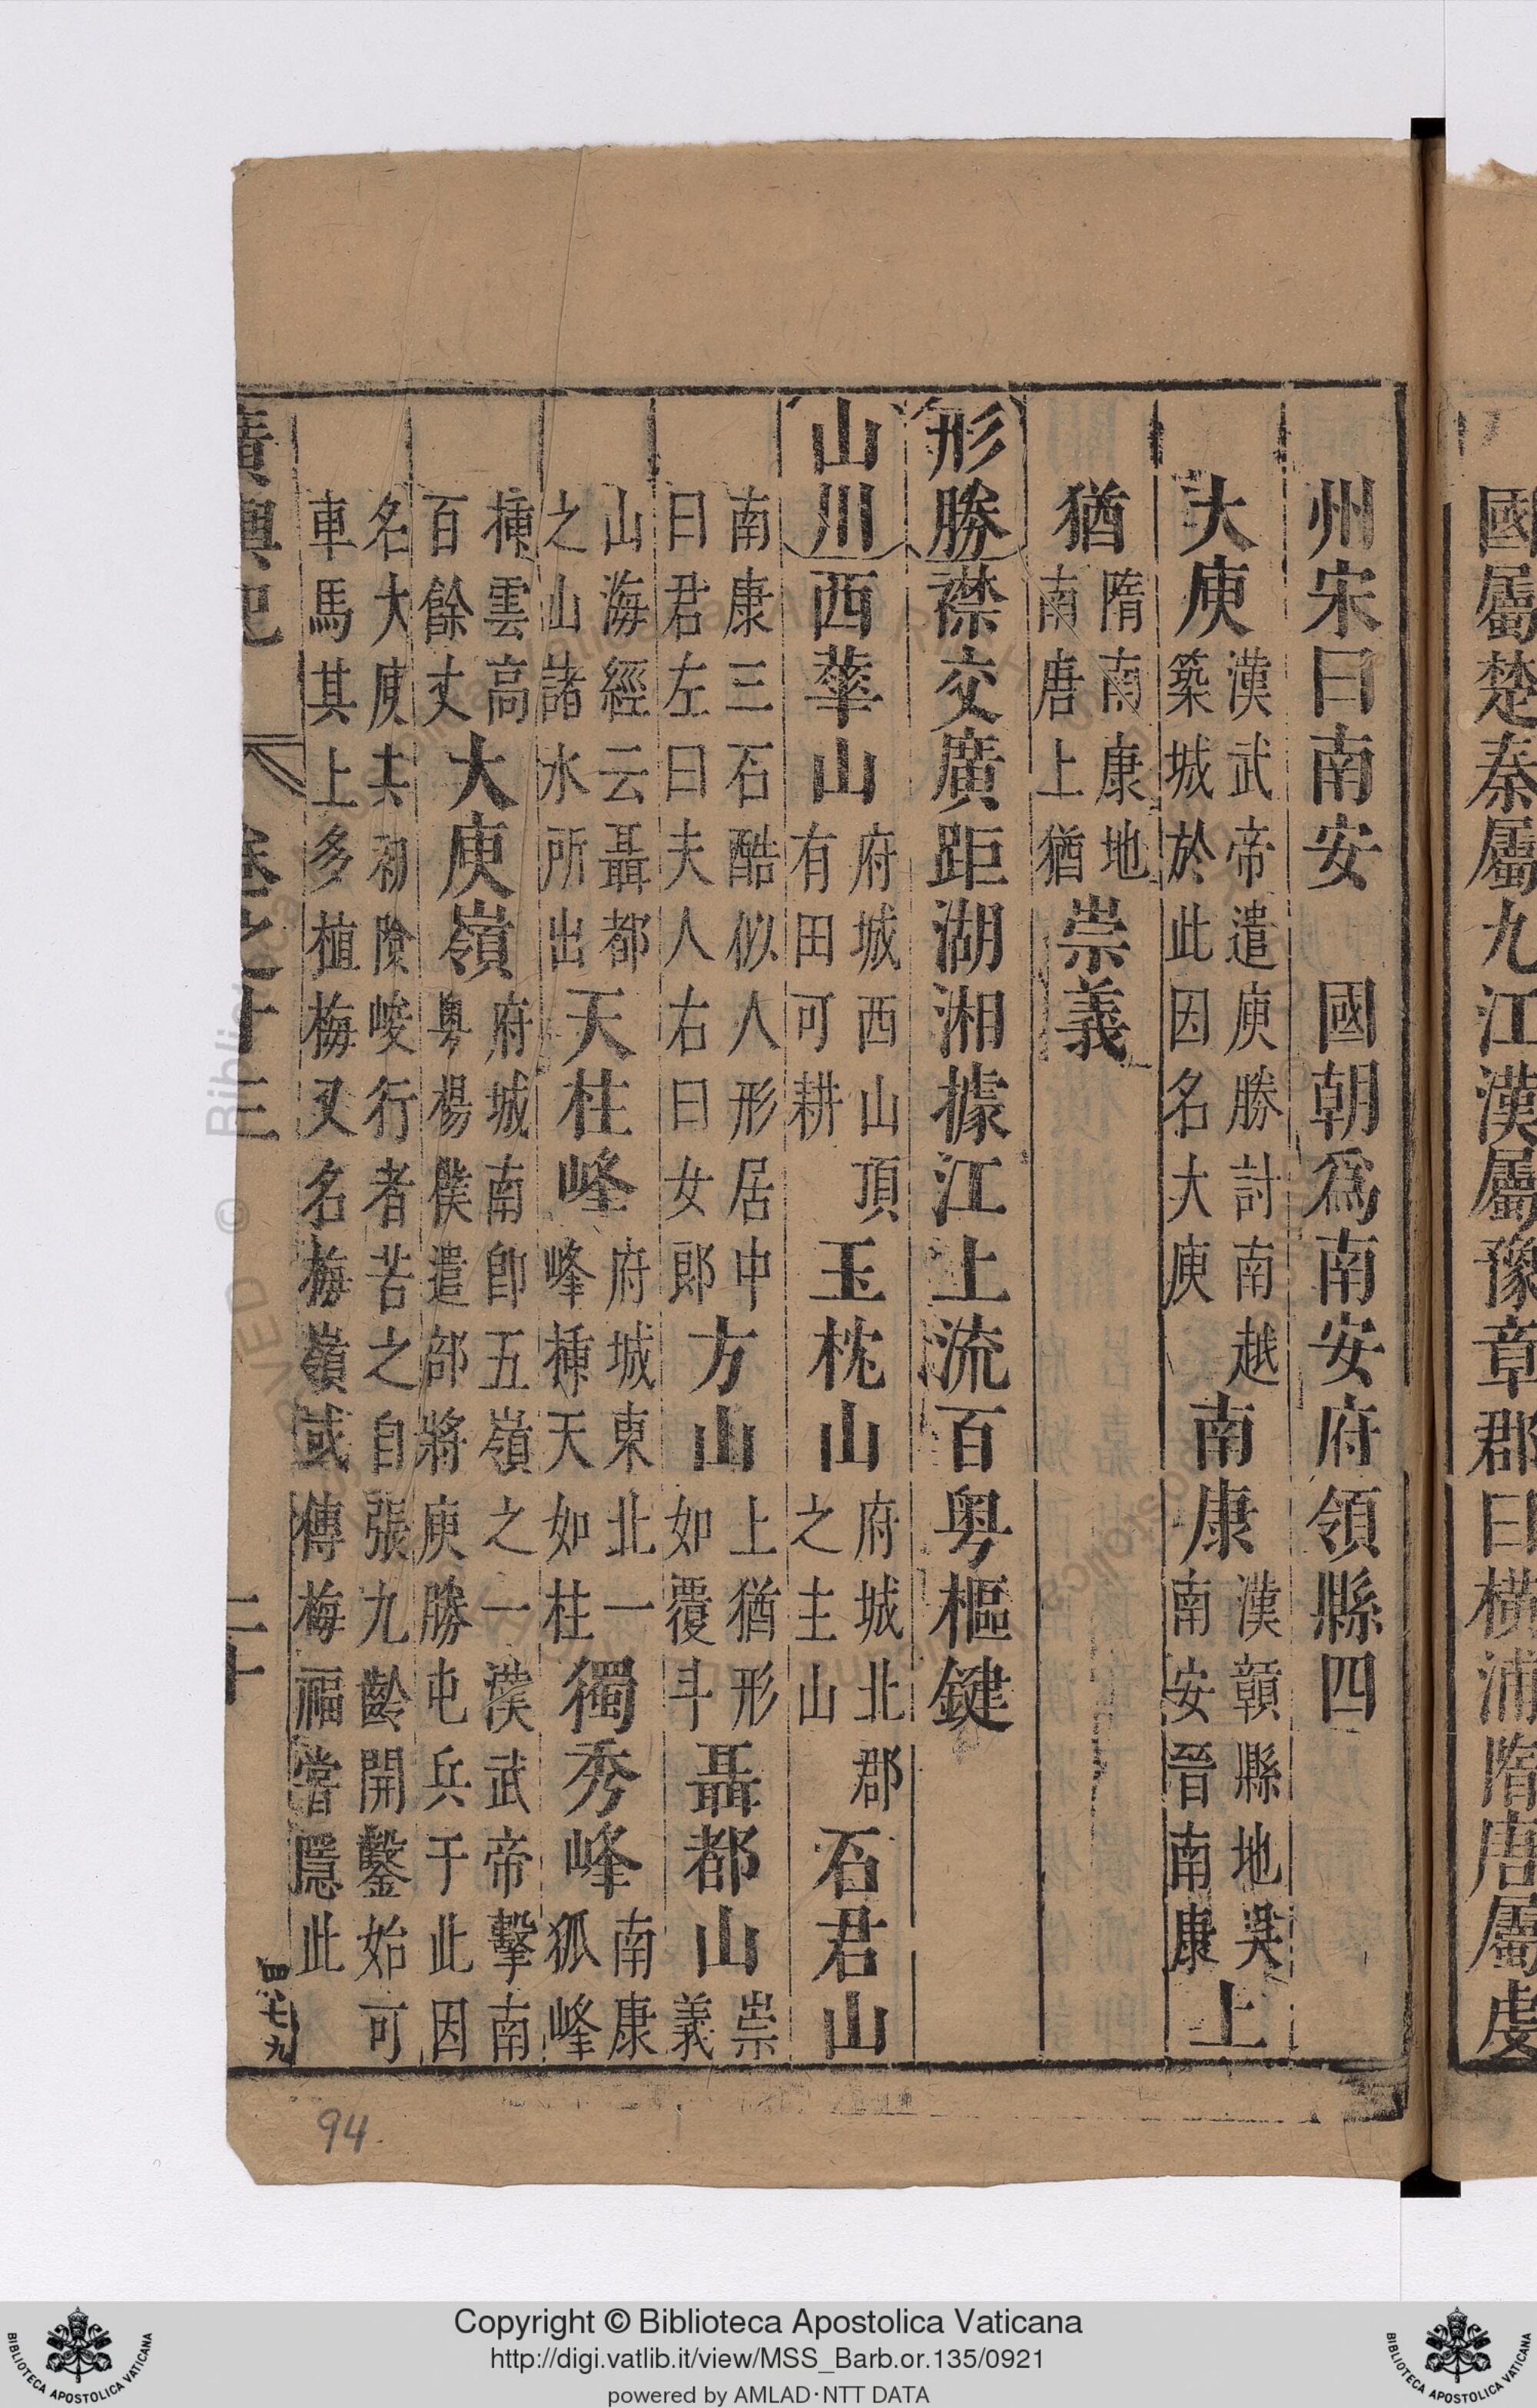 國屬楚秦屬九江漢屬豫章郡曰橫浦隋唐屬虔
州宋曰南安　國朝爲南安府領縣四
大庾漢武帝遣庾勝討南越築城於此因名大庾南康漢贛縣地吳南安晉南康上
猶隋南康地南唐上猶崇義
形勝襟交廣距湖湘據江上流百粤樞鍵
山川西華山府城西山頂有田可耕玉枕山府城北郡之主山石君山
南康三石酷似人形居中曰君左曰夫人右曰女郎方山上猶形如覆斗聶都山崇義
山海經云聶都之山諸水所出天柱峰府城東北一峰挿天如柱獨秀峰南康狐峰
挿雲高百餘丈大庾嶺府城南卽五嶺之一漢武帝擊南粤楊僕遣部將庾勝屯兵于此因
名大庾共初險峻行者苦之自張九齡開鑿始可車馬其上多植梅又名梅嶺或傳梅福嘗隱此
廣輿記　卷之十三　二十
四七九
94
Copyright © Biblioteca Apostolica Vaticana
http://digi.vatlib.it/view/MSS_Barb.or.135/0921
powered by AMLAD·NTT DATA
BIBLIOTECA APOSTOLICA VATICANA
BIBLIOTECA APOSTOLICA VATICANA